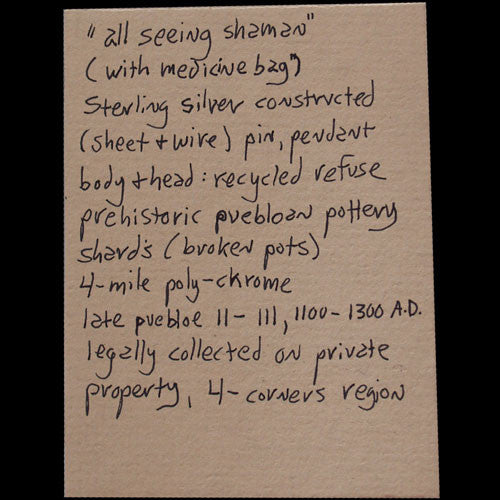 "all seeing shaman"
(with medicine bag")
Sterling silver constructed
(sheet + wire) pin, pendant
body + head: recycled refuse
prehistoric puebloan pottery
shards (broken pots)
4-mile poly-chrome
late puebloe II - III, 1100-1300 A.D.
legally collected on private
property, 4-corners region